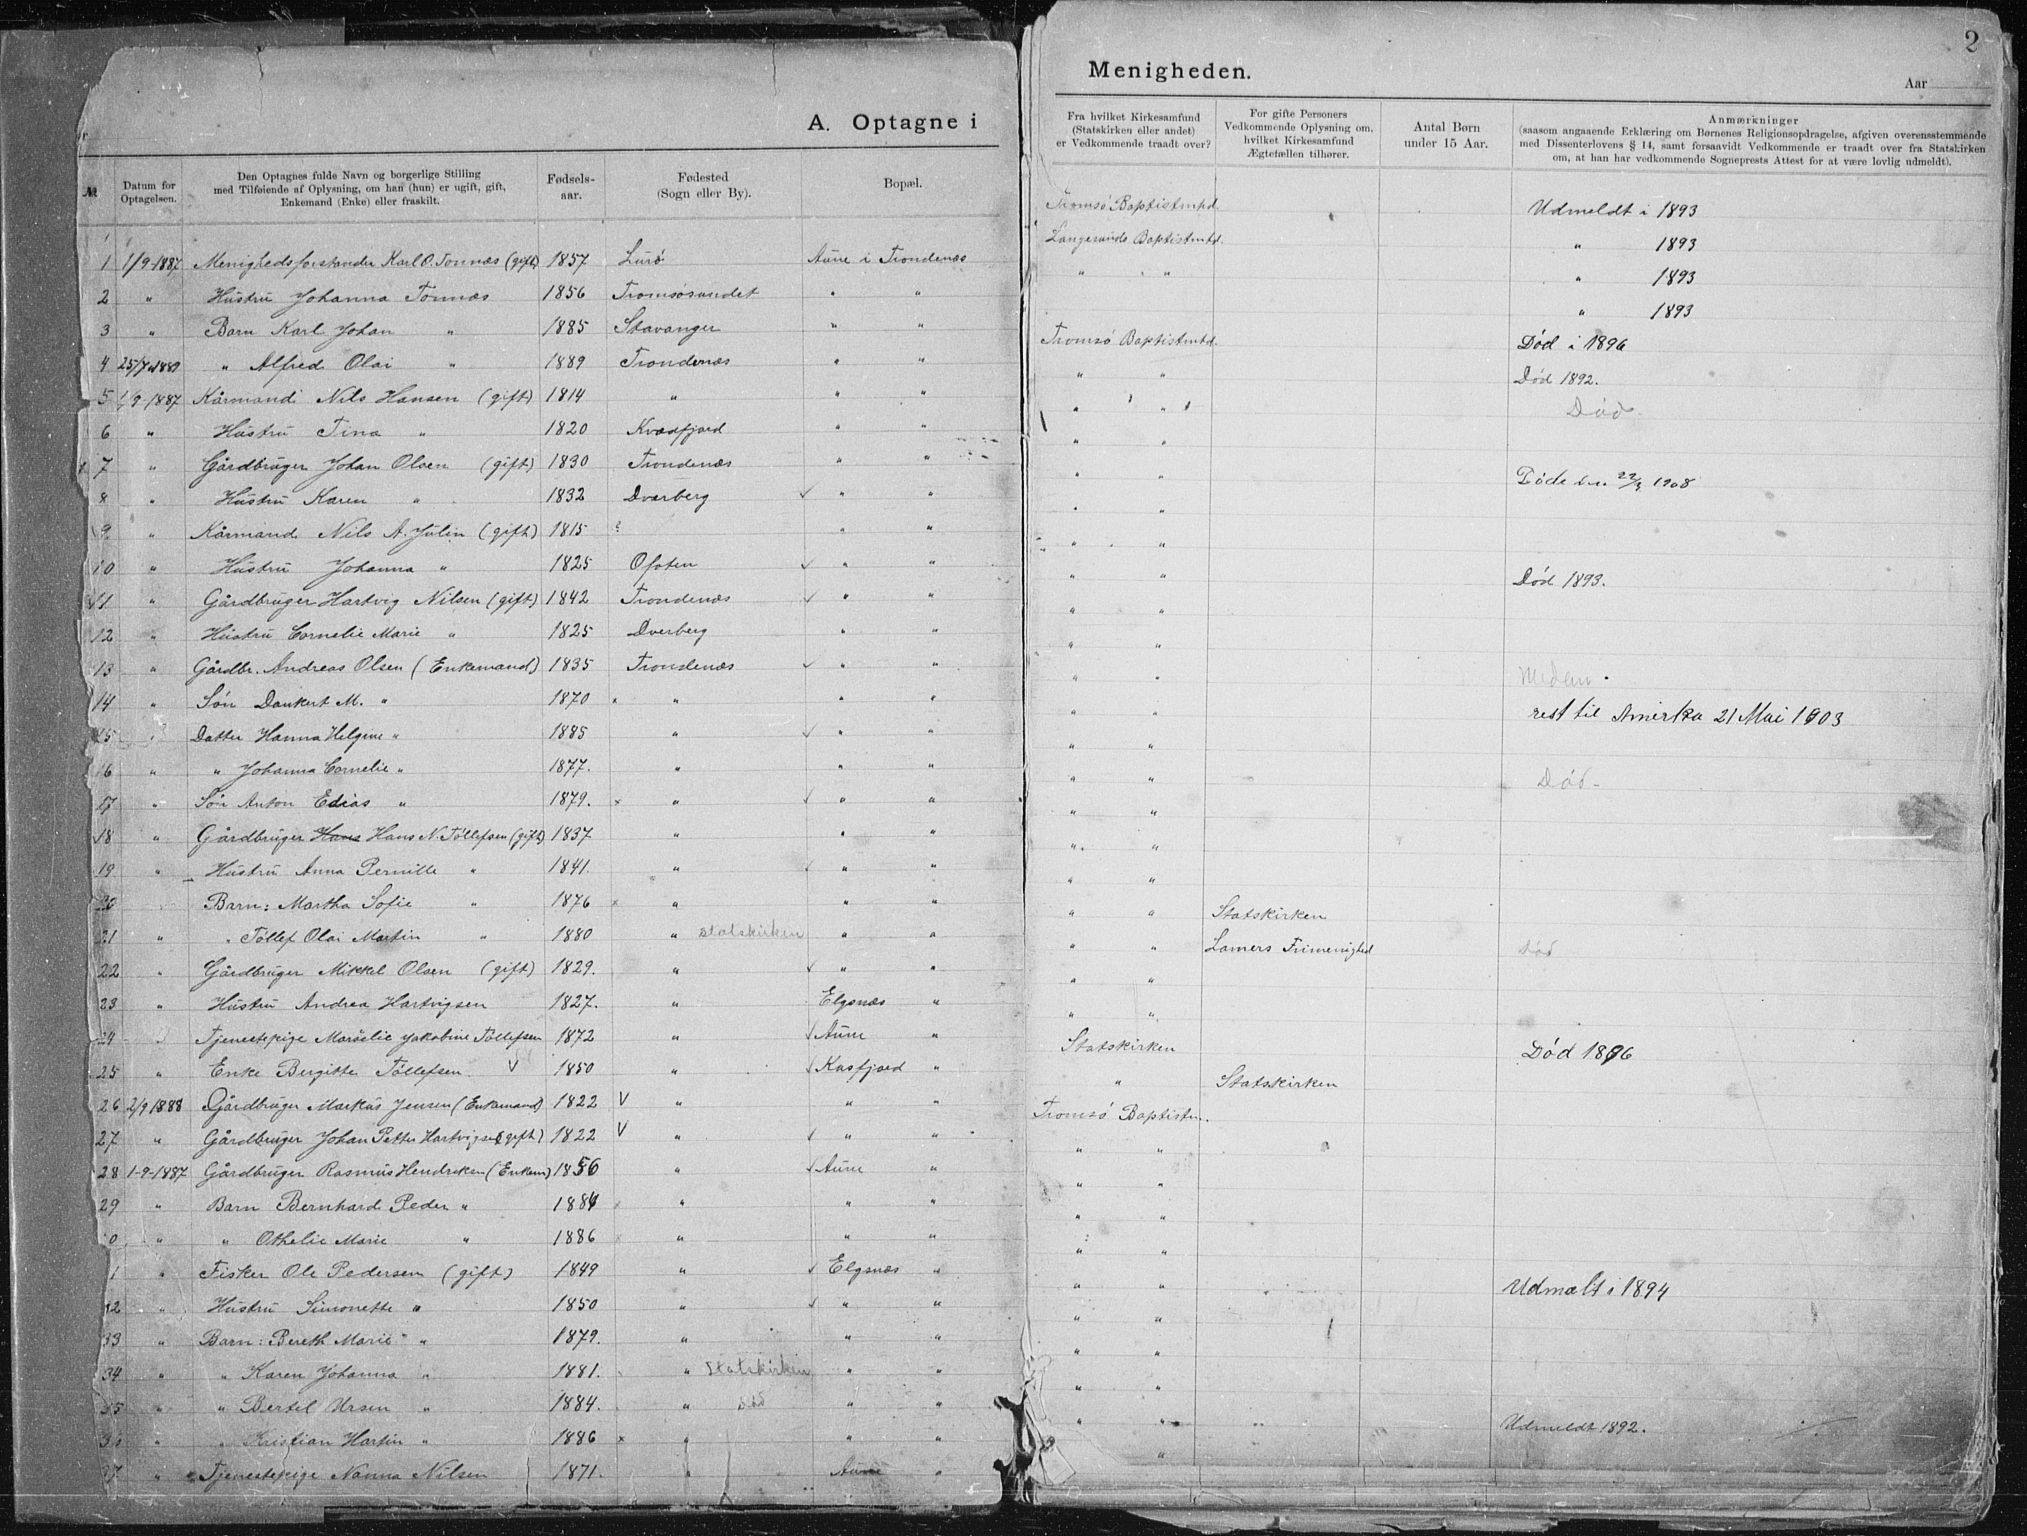 A. Optagne i
№
Datum for
Optagelsen.
Den Optagnes fulde Navn og borgerlige Stilling
med Tilføiende af Oplysning, om han (hun) er ugift, gift,
Enkemand (Enke) eller fraskilt.
Fødsels-
aar.
Fødested
(Sogn eller By).
Bopæl.
1 1/9-1887 Menighedsforstander Karl O. Tonnæs (gift) 1857 Lurö Aune i Trondenæs
2 " Hustru Johanna Tonnæs 1856 Tromsösundet " "
3 " Barn Karl Johan " 1885 Stavanger " "
4 1889 " Alfred Olai " 1889 Trondenæs " "
5 1/9-1887 Kårmand Nils Hansen (gift) 1814 " " "
6 " Hustru Tina " 1820 Kvæfjord " "
7 " Gårdbruger Johan Olsen (gift) 1830 Trondenæs " "
8 " Hustru Karen " 1832 Dverberg ✓ " "
9 " Kårmand Nils A. Julin (gift) 1815 ? " "
10 " Hustru Johanna " 1825 Ofoten ✓ " "
11 " Gårdbruger Hartvig Nilsen (gift) 1842 Trondenæs ✓ " "
12 " Hustru Cornelie Marie " 1825 Dverberg " "
13 " Gårdbr. Andreas Olsen (Enkemand) 1835 Trondenæs ✓ " "
14 " Sön Dankert M. " 1870 × " " "
15 " Datter Hanna Helgine " 1885 " ✓ " "
16 " " Johanna Cornelie " 1877. " " "
17 " Sön Anton Edias " 1879. × " ✓ " "
18 " Gårdbruger Hans Hans N. Töllefsen (gift) 1837 " " "
19 " Hustru Anna Pernille " 1841. " ✓ " "
20 Barn: Martha Sofie " 1876 × " " "
21 " " Töllef Olai Martin " 1880 " Statskirken " "
22 " Gårdbruger Mikkel Olsen (gift) 1829. " ✓ " "
23 " Hustru Andrea Hartvigsen 1827. " Elgsnæs "
24 Tjenestepige Marselie Jakobine Töllefsen 1872 " ✓ Aune "
25 " Enke Bergitte Töllefsen V 1850 " ✓ Kasfjord "
26 2/9 1888 Gårdbruger Markus Jensen (Enkemand) 1822 V " " "
27 " Gårdbruger Johan Petter Hartvigsen (gift) 1822 V " ✓ " "
28 1-9-1887 Gårdbruger Rasmus Hendriksen (Enkem) 1856 " ✓ Aune "
29 " Barn Bernhard Peder " 1884 × " " "
0 " " Othelie Marie " 1886 × " " "
1 " Fisker Ole Pedersen (gift) 1849 " ✓ Elgsnæs "
32 " Hustru Simonette " 1850 " ✓ " "
33 " Barn: Bereth Marie " 1879. " " "
34 " " Karen Johanna " 1881. " Statskirken " "
35 " " Bertel Ursen " 1884. " död " "
36 " " Kristian Hartin " 1886 × " " "
37 " Tjenestepige Nanna Nilsen 1871. " Aune "
2
Menigheden.
Aar
Fra hvilket Kirkesamfund
(Statskirken eller andet)
er Vedkommende traadt over?
For gifte Personers
Vedkommende Oplysning om,
hvilket Kirkesamfund
Ægtefællen tilhører.
Antal Børn
under 15 Aar.
Anmærkninger
(saasom angaaende Erklæring om Børnenes Religionsopdragelse, afgiven overensstemmende
med Dissenterlovens § 14, samt forsaavidt Vedkommende er traadt over fra Statskirken
om, at han har vedkommende Sogneprests Attest for at være lovlig udmeldt).
Tromsö Baptistmhd. Udmeldt i 1893
Langesunds Baptistmtd. " 1893
" " " 1893
" 1893
Tromsö Baptistmtd. Död i 1896
" " Död 1892.
" " Död
" "
" " Döde 1908
" "
" "
" " Död 1893.
" "
" "
" "
" " rest til Amerka 21 Mai 1903
" "
" " Död
" "
" "
" "
" " Statskirken
" " Lamers Frimenighed Död
" "
" "
Statskirken Död 1896
" Statskirken
Tromsö Baptistm.
" "
" "
" "
" "
" " Udmælt i 1894
" "
" "
" "
" " " Udmeldt 1892.
"